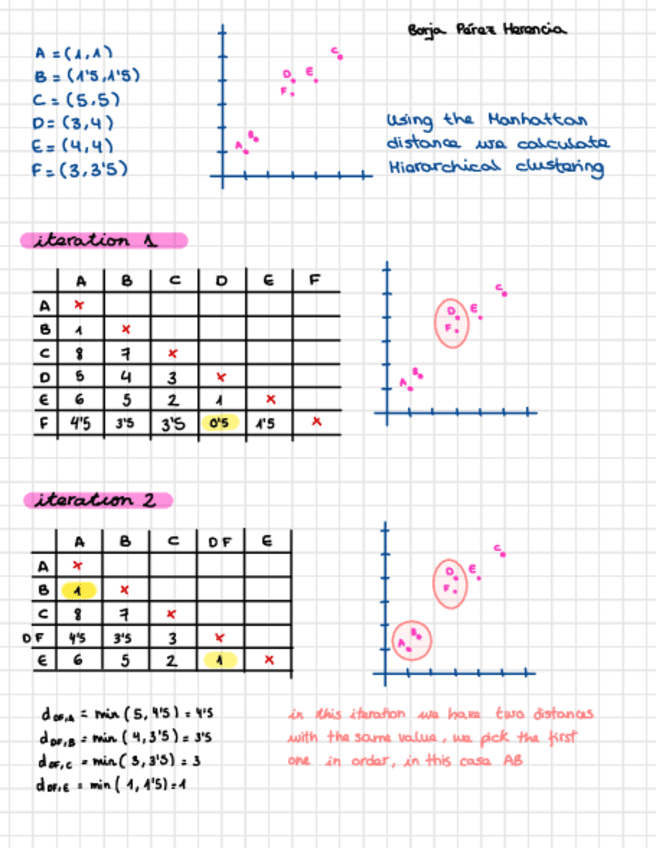 Borja Pérez Herencia
A = (1,1)
B = (1'5,1'5)
C = (5,5)
D = (3,4)
E = (4,4)
F = (3,3'5)
C
D E
F
B
A
Using the Manhattan
distance we calculate
Hierarchical clustering
iteration 1
A B C D E F
A ×
B 1 ×
C 8 7 ×
D 5 4 3 ×
E 6 5 2 1 ×
F 4'5 3'5 3'5 0'5 1'5 ×
C
D E
F
B
A
iteration 2
A B C DF E
A ×
B 1 ×
C 8 7 ×
DF 4'5 3'5 3 ×
E 6 5 2 1 ×
C
D E
F
B
A
d DF,A = min (5, 4'5) = 4'5
d DF,B = min (4, 3'5) = 3'5
d DF,C = min (3, 3'5) = 3
d DF,E = min (1, 1'5) = 1
in this iteration we have two distances
with the same value, we pick the first
one in order, in this case AB